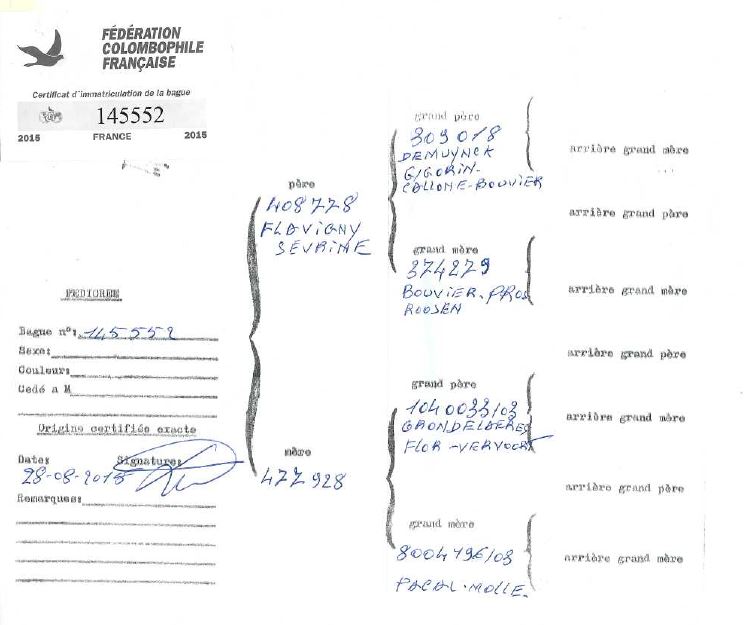 FÉDÉRATION
COLOMBOPHILE
FRANÇAISE
Certificat d'immatriculation de la bague
145552
2015 FRANCE 2015
PEDIGREE
Bague n°: 145552
Sexe:
Couleur:
Cedé a M
Origine certifiée exacte
Date: Signature:
28-08-2015
Remarques:
père
408778
FLAVIGNY
SEVRINE
mère
477928
grand père
309018
DEMUYNCK
GIGORIN-
CALLONE-BOUVIER
grand mère
374279
BOUVIER-PROS
ROOSEN
grand père
1040033/03
GRONDELAERES
FLOR-VERVOORT
grand mère
8004796/03
PACAL-MOLLE.
arrière grand mère
arrière grand père
arrière grand mère
arrière grand père
arrière grand mère
arrière grand père
arrière grand mère